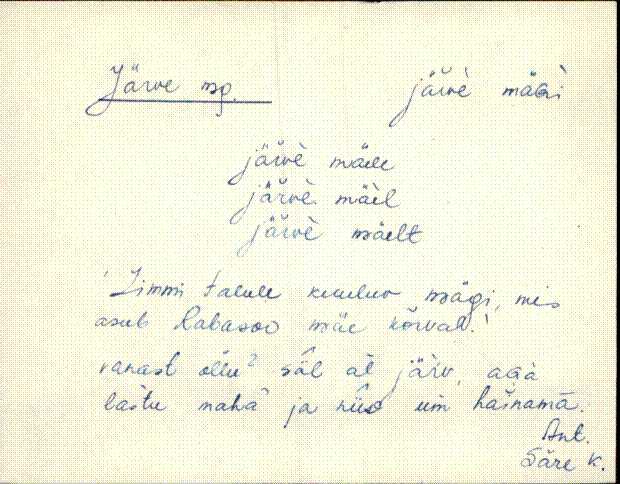 Järve mg. järvè mäǵi
järvè mäele
järvè mäèl
järvè mäelt
'Limmi talule kuuluv mägi, mis
asub Rabasoo mäe kõrval.'
vanast ollu? säl al järv, aga
lastu mahà ja nüid um hainamà.
Ant.
Säre k.